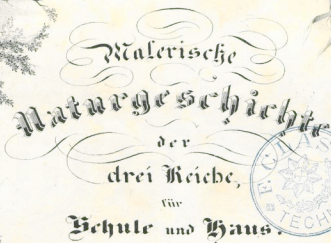 Malerische
Naturgeschichte
der
drei Reiche,
für
Schule und Haus.
TECH